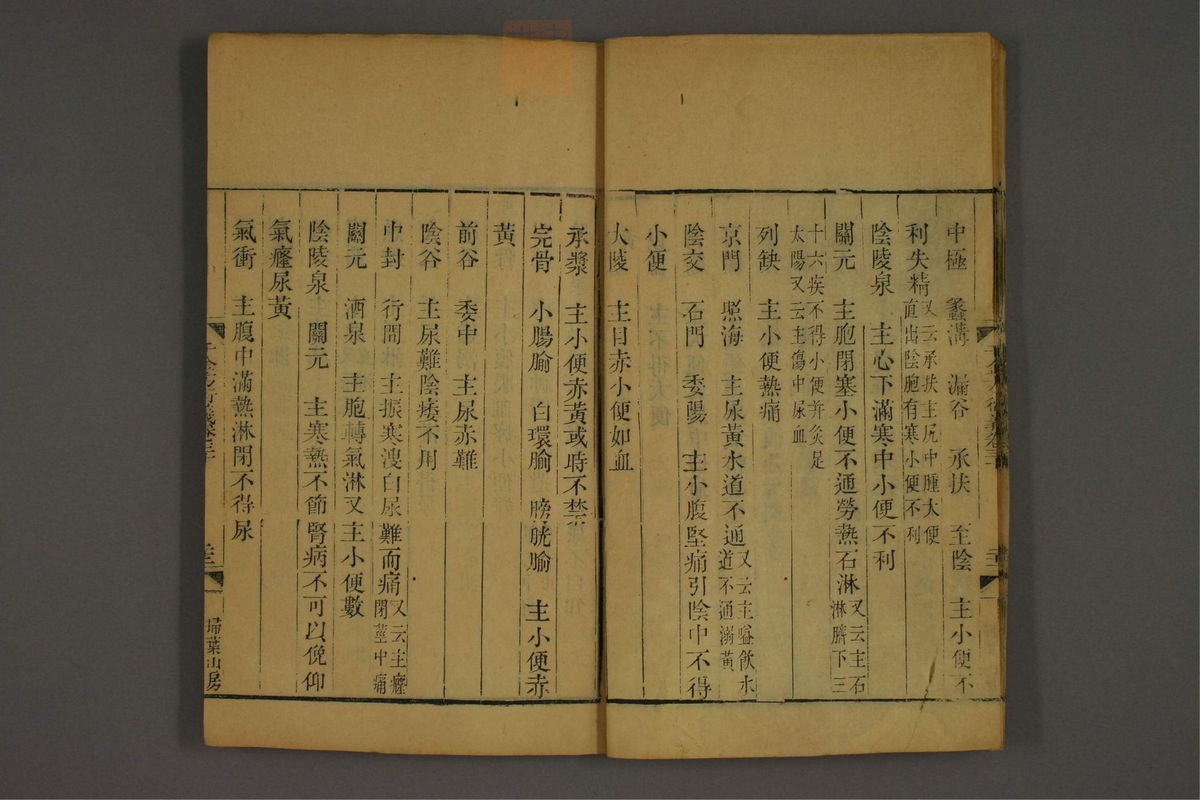 中極　蠡溝　漏谷　承扶　至陰　主小便不
利失精又云承扶主尻中腫大便直出陰胞有寒小便不利
陰陵泉　主心下滿寒中小便不利
關元　主胞閉塞小便不通勞熱石淋又云主石淋臍下三
十六疾不得小便并灸足太陽又云主傷中尿血
列缺　主小便熱痛
京門　照海　主尿黃水道不通又云主嗌飲水道不通溺黃
陰交　石門　委陽　主小腹堅痛引陰中不得
小便
大陵　主目赤小便如血
承漿　主小便赤黃或時不禁
完骨　小腸腧　白環腧　膀胱腧　主小便赤
黃
前谷　委中　主尿赤難
陰谷　主尿難陰痿不用
中封　行間　主振寒溲白尿難而痛又云主癃閉莖中痛
關元　湧泉　主胞轉氣淋又主小便數
陰陵泉　關元　主寒熱不節腎病不可以俛仰
氣癃尿黃
氣衝　主腹中滿熱淋閉不得尿
掃葉山房